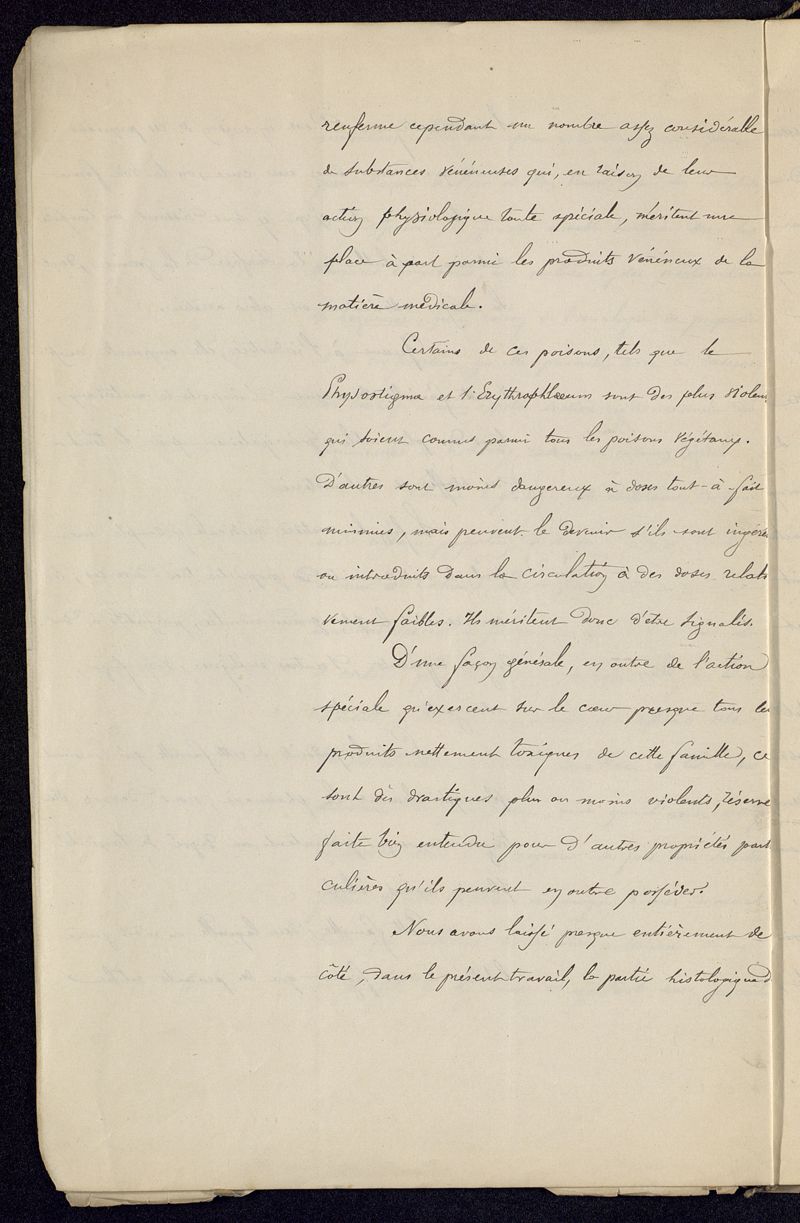 renferme cependant un nombre assez considérable
de substances vénéneuses qui, en raison de leur
action physiologique toute spéciale, méritent une
place à part parmi les produits vénéneux de la
matière médicale.
Certains de ces poisons, tels que le
Physostigma et l'Erythrophlœum sont des plus violen
qui soient connus parmi tous les poisons végétaux.
D'autres sont moins dangereux à doses tout-à-fait
minimes, mais peuvent le devenir s'ils sont ingéré
ou introduits dans la circulation à des doses relati
vement faibles. Ils méritent donc d'être signalés.
D'une façon générale, en outre de l'action
spéciale qu'exercent sur le cœur presque tous le
produits nettement toxiques de cette famille, ce
sont des drastiques plus ou moins violents, réserve
faite bien entendu pour d'autres propriétés part
culières qu'ils peuvent en outre posséder.
Nous avons laissé presque entièrement de
côté, dans le présent travail, la partie histologique d